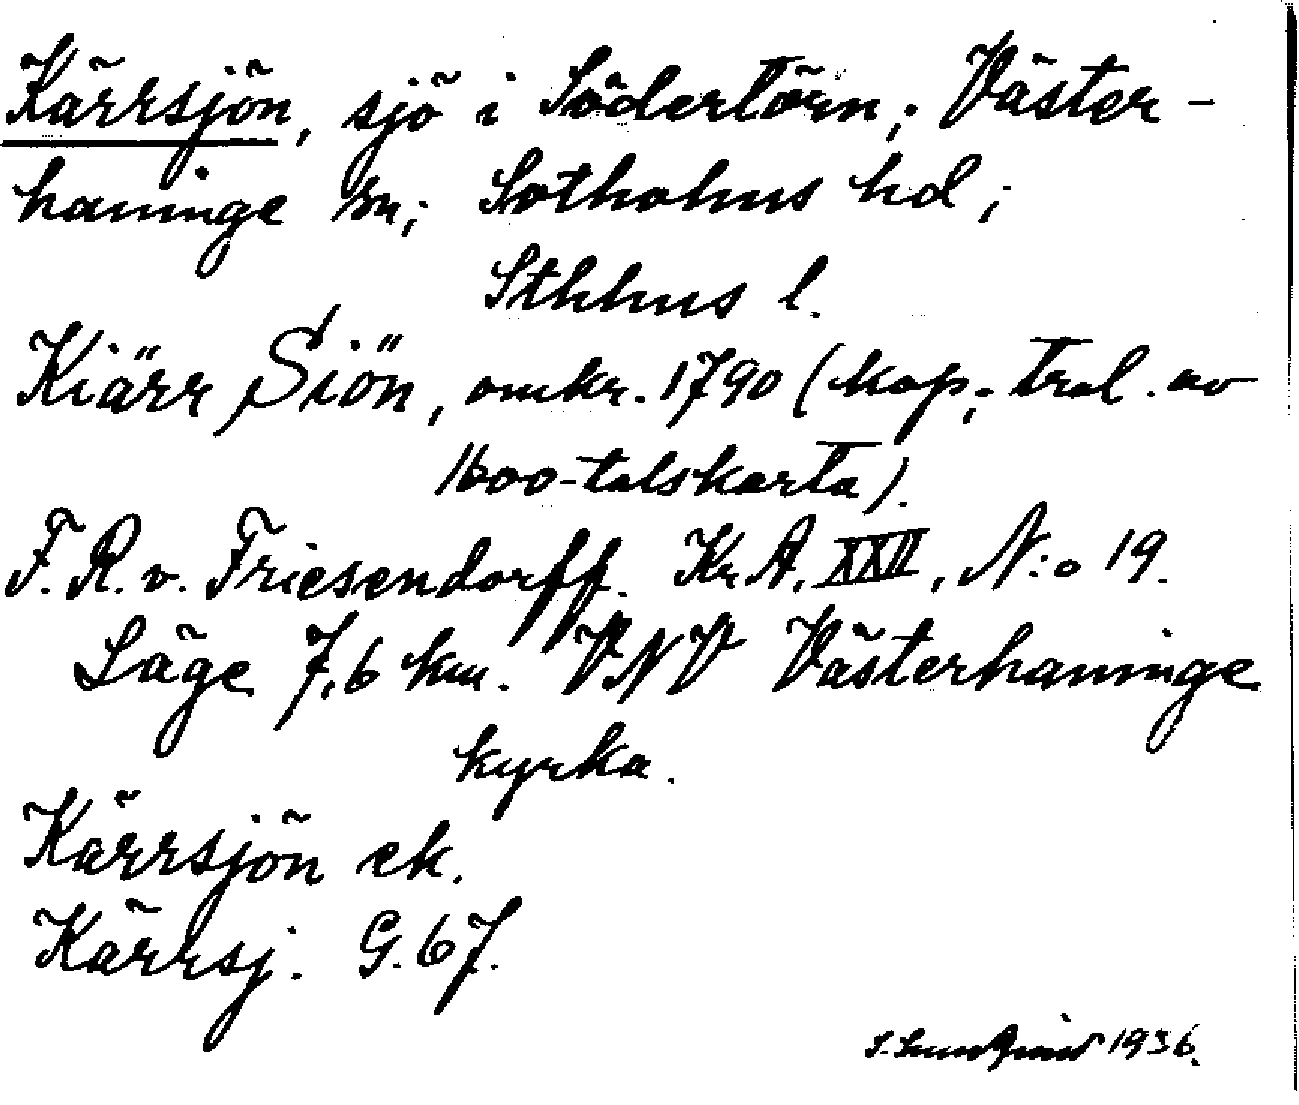 Kärrsjön, sjö i Södertörn; Väster-
haninge sn; Sotholms hd;
Sthlms l.
Kiärr Siön, omkr. 1790 (kop; trol. av
1600-talskarta).
F. R. v. Friesendorff. Kr. A. XXII, N:o 19.
Läge 7,6 km. VNV Västerhaninge
kyrka.
Kärrsjön ek.
Kärrsj. G. 67.
S. Lundqvist 1936.